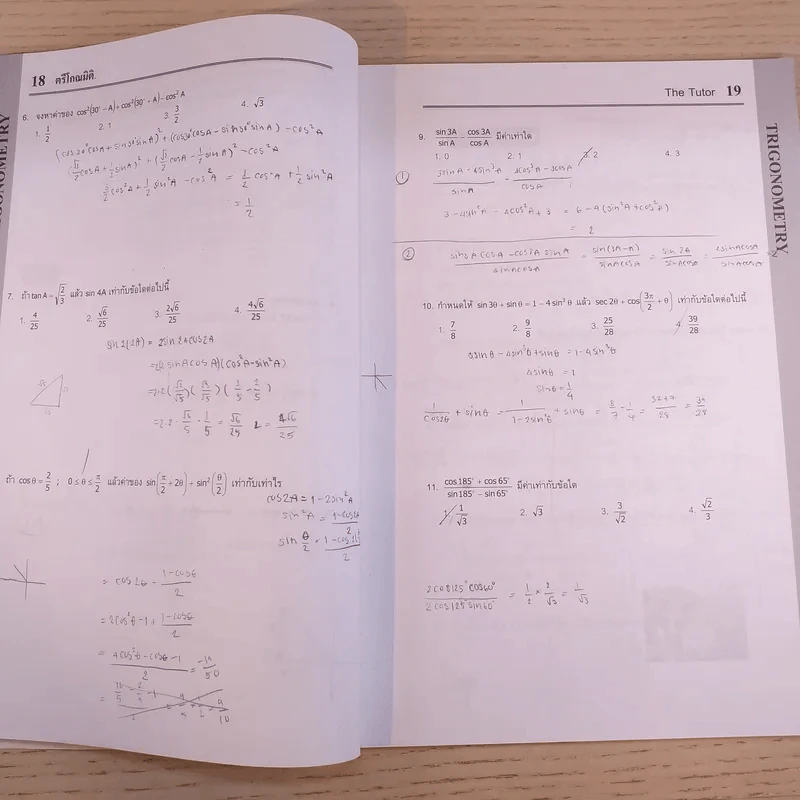 18 ตรีโกณมิติ.
6. จงหาค่าของ cos²(30° − A) + cos²(30° + A) − cos² A
1. 1/2 2. 1 3. 3/2 4. √3
(cos30°cosA + sin30°sinA)² + (cos30°cosA − sin30°sinA)² − cos²A
(√3/2 cosA + 1/2 sinA)² + (√3/2 cosA − 1/2 sinA)² − cos²A
3/2 cos²A + 1/2 sin²A − cos²A = 1/2 cos²A + 1/2 sin²A
= 1/2
7. ถ้า tan A = √(2/3) แล้ว sin 4A เท่ากับข้อใดต่อไปนี้
1. 4/25 2. √6/25 3. 2√6/25 4. 4√6/25
sin2(2A) = 2sin2Acos2A
= 2(2sinAcosA)(cos²A − sin²A)
= 2·2 (√2/√5)(√3/√5)(3/5 − 2/5)
= 2·2·√6/5·1/5 = √6/25 = 4√6/25
ถ้า cos θ = 2/5 ; 0 ≤ θ ≤ π/2 แล้วค่าของ sin(π/2 + 2θ) + sin²(θ/2) เท่ากับเท่าไร
cos2A = 1 − 2sin²A
sin²A = (1 − cos2A)/2
= cos2θ + (1 − cosθ)/2
= 2cos²θ − 1 + (1 − cosθ)/2
= (4cos²θ − cosθ − 1)/2 = −19/50
The Tutor 19
9. sin 3A/sin A − cos 3A/cos A มีค่าเท่าใด
1. 0 2. 1 3. 2 4. 3
① (3sinA − 4sin³A)/sinA − (4cos³A − 3cosA)/cosA
3 − 4sin²A − 4cos²A + 3 = 6 − 4(sin²A + cos²A)
= 2
② (sin3A cosA − cos3A sinA)/sinAcosA = sin(3A−A)/sinAcosA = sin2A/sinAcosA = 2sinAcosA/sinAcosA
10. กำหนดให้ sin 3θ + sin θ = 1 − 4 sin³ θ แล้ว sec 2θ + cos(3π/2 + θ) เท่ากับข้อใดต่อไปนี้
1. 7/8 2. 9/8 3. 25/28 4. 39/28
3sinθ − 4sin³θ + sinθ = 1 − 4sin³θ
4sinθ = 1
sinθ = 1/4
1/cos2θ + sinθ = 1/(1 − 2sin²θ) + sinθ = 8/7 + 1/4 = (32+7)/28 = 39/28
11. (cos 185° + cos 65°)/(sin 185° − sin 65°) มีค่าเท่ากับข้อใด
1. 1/√3 2. √3 3. 3/√2 4. √2/3
2cos125°cos60°/2cos125°sin60° = 1/2 × 2/√3 = 1/√3
TRIGONOMETRY